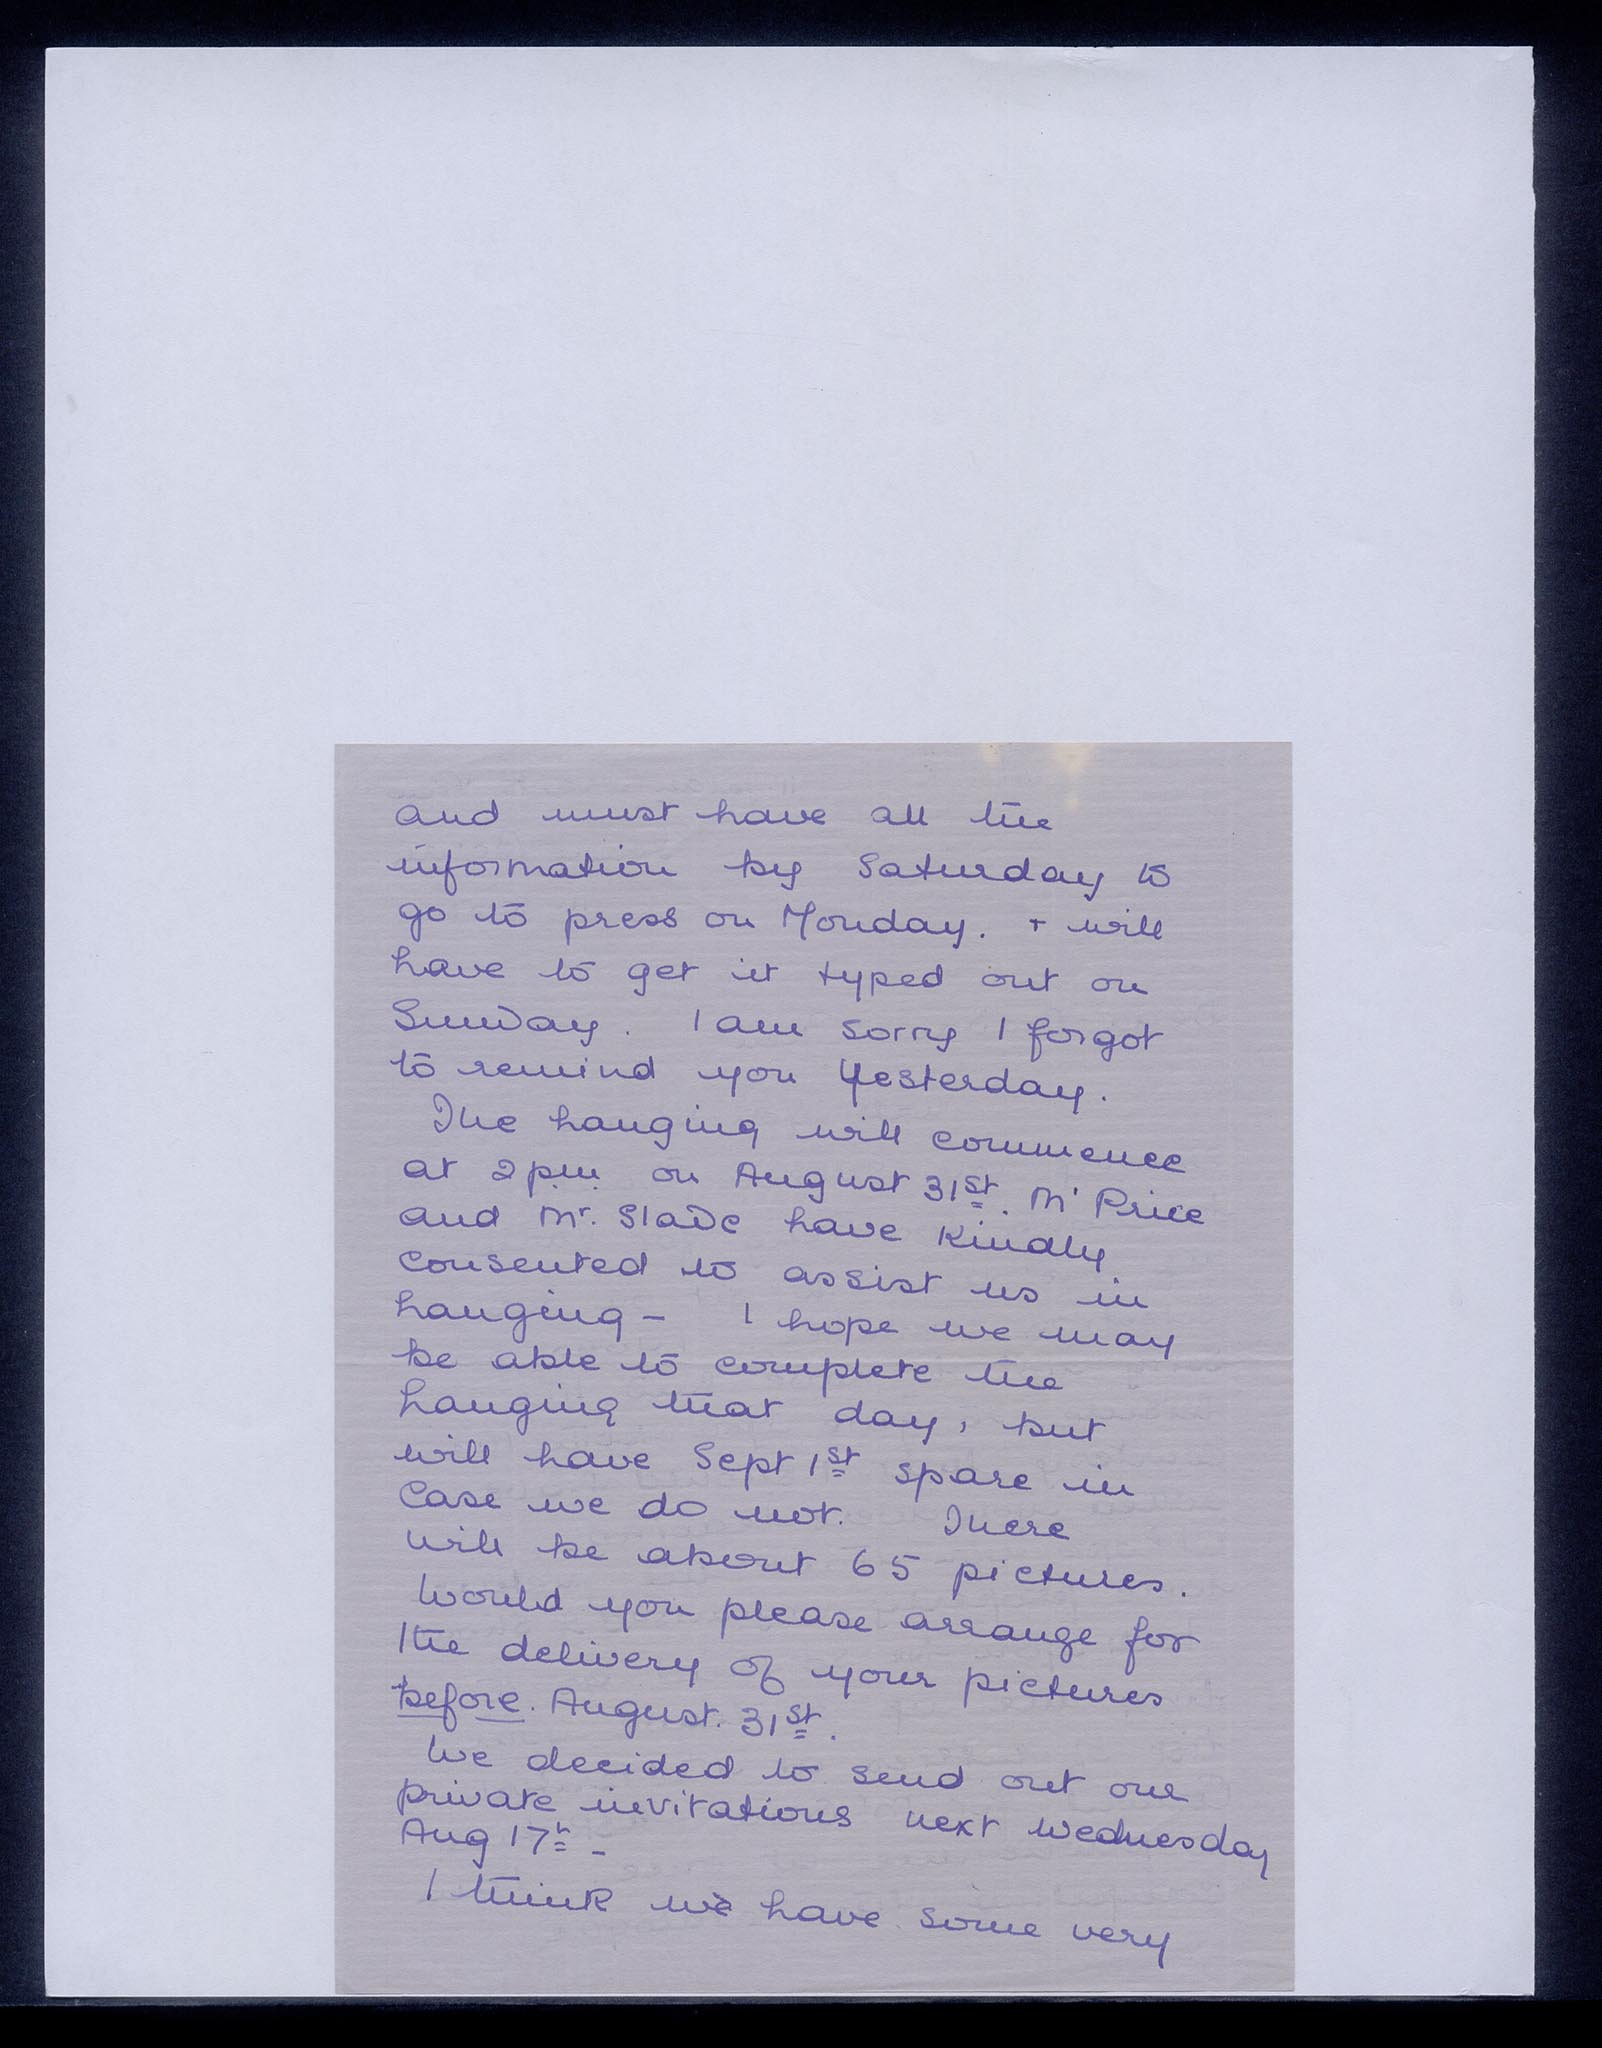 and must have all the
information by Saturday to
go to press on Monday. + will
have to get it typed out on
Sunday. I am sorry I forgot
to remind you Yesterday.
The hanging will commence
at 2 p.m. on August 31st. Mr Price
and Mr. Slade have kindly
consented to assist us in
hanging - I hope we may
be able to complete the
hanging that day, but
will have Sept 1st spare in
case we do not. There
will be about 65 pictures.
Would you please arrange for
the delivery of your pictures
before. August. 31st.
We decided to send out our
private invitations next Wednesday
Aug 17th -
I think we have some very